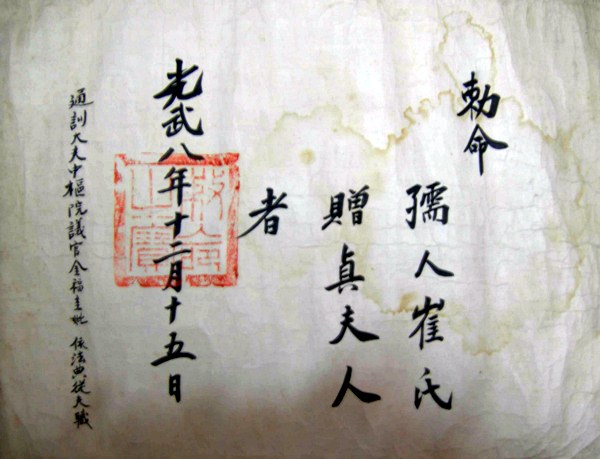 勅命
孺人崔氏
贈貞夫人
者
光武八年十二月十五日
勅命之寶
通訓大夫中樞院議官金福圭妣 依法典從夫職